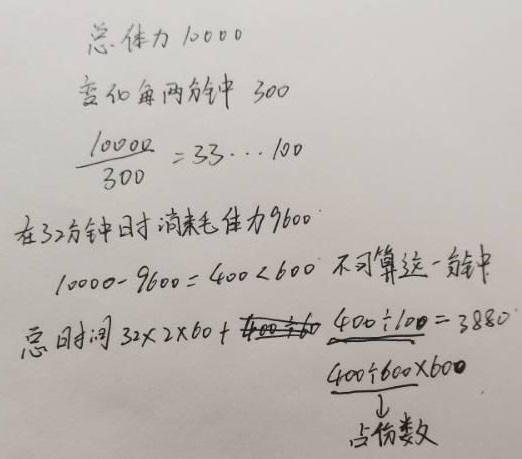 总体力 10000
变化每两分钟 300
10000/300 = 33···100
在32分钟时 消耗体力9600
10000-9600=400<600 不可算这一分钟
总时间 32×2×60+ 400÷60 400÷100=3880
400÷600×600
↓
占份数